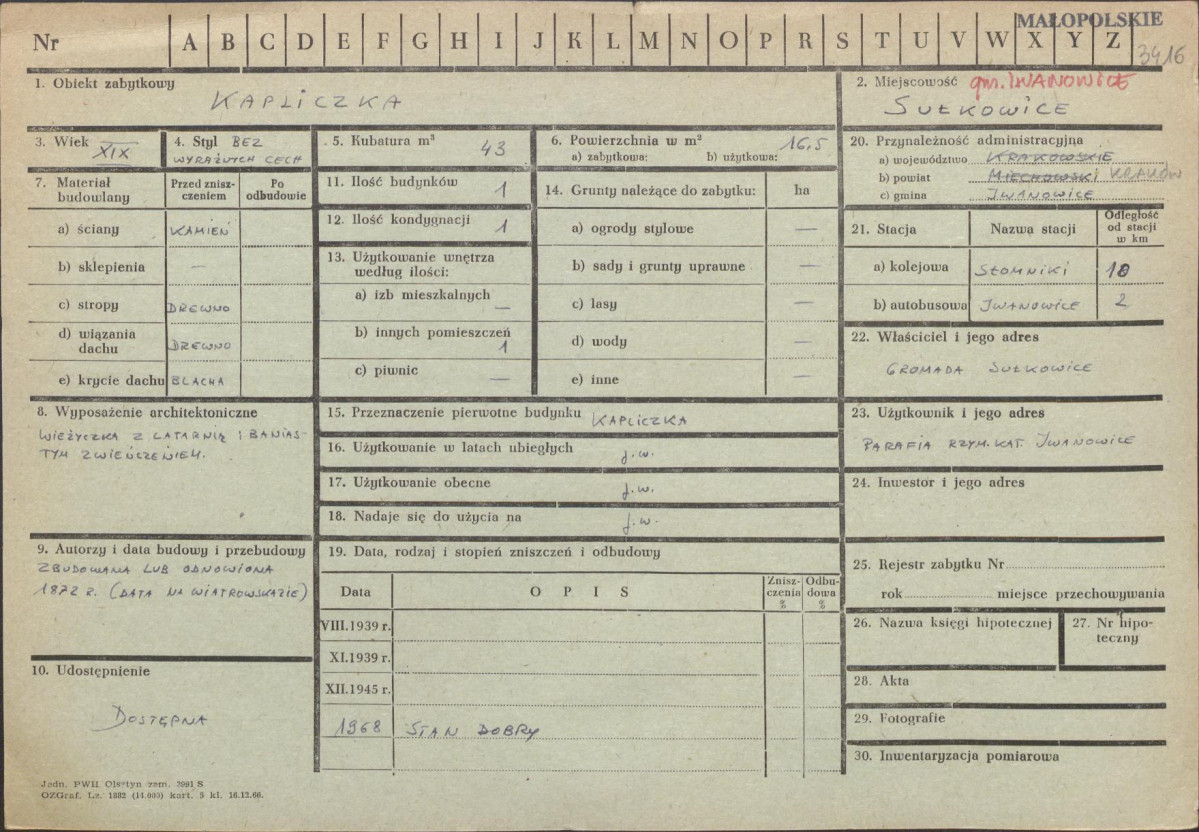 MAŁOPOLSKIE
Nr A B C D E F G H I J K L M N O P R S T U V W X Y Z
3416
1. Obiekt zabytkowy
KAPLICZKA
2. Miejscowość gm. IWANOWICE
SUŁKOWICE
3. Wiek XIX
4. Styl BEZ
WYRAŹNYCH CECH
5. Kubatura m³ 43
6. Powierzchnia w m²
a) zabytkowa: b) użytkowa: 16,5
20. Przynależność administracyjna
a) województwo KRAKOWSKIE
b) powiat MIECHOWSKI KRAKÓW
c) gmina IWANOWICE
7. Materiał budowlany
Przed znisz-
czeniem
Po
odbudowie
a) ściany KAMIEŃ
b) sklepienia —
c) stropy DREWNO
d) wiązania
dachu DREWNO
e) krycie dachu BLACHA
11. Ilość budynków 1
12. Ilość kondygnacji 1
13. Użytkowanie wnętrza
według ilości:
a) izb mieszkalnych —
b) innych pomieszczeń
1
c) piwnic —
14. Grunty należące do zabytku: ha
a) ogrody stylowe —
b) sady i grunty uprawne —
c) lasy —
d) wody —
e) inne —
21. Stacja Nazwa stacji
Odległość
od stacji
w km
a) kolejowa SŁOMNIKI 10
b) autobusowa IWANOWICE 2
22. Właściciel i jego adres
GROMADA SUŁKOWICE
8. Wyposażenie architektoniczne
WIEŻYCZKA Z LATARNIĄ I BANIAS-
TYM ZWIEŃCZENIEM.
15. Przeznaczenie pierwotne budynku KAPLICZKA
16. Użytkowanie w latach ubiegłych j.w.
17. Użytkowanie obecne j.w.
18. Nadaje się do użycia na j.w.
23. Użytkownik i jego adres
PARAFIA RZYM. KAT. IWANOWICE
24. Inwestor i jego adres
9. Autorzy i data budowy i przebudowy
ZBUDOWANA LUB ODNOWIONA
1872 r. (DATA NA WIATROWSKAZIE)
19. Data, rodzaj i stopień zniszczeń i odbudowy
Data O P I S
Znisz-
czenia
%
Odbu-
dowa
%
VIII.1939 r.
XI.1939 r.
XII.1945 r.
1968 STAN DOBRY
25. Rejestr zabytku Nr
rok miejsce przechowywania
26. Nazwa księgi hipotecznej
27. Nr hipo-
teczny
10. Udostępnienie
DOSTĘPNA
28. Akta
29. Fotografie
30. Inwentaryzacja pomiarowa
Jedn. PWH Olsztyn zam. 2991 S
OZGraf. Lz. 1882 (14.000) kart. 5 kl. 16.12.66.